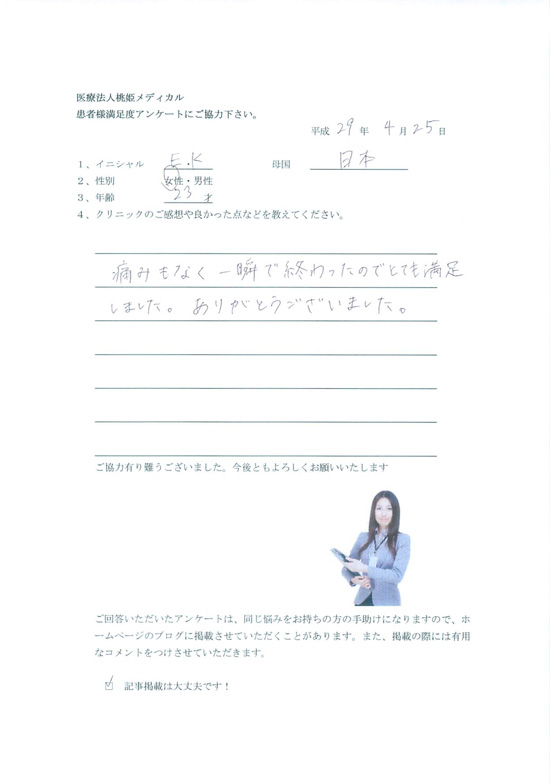 医療法人桃姫メディカル
患者様満足度アンケートにご協力下さい。
平成 29 年 4 月 25 日
1、イニシャル E.K 母国 日本
2、性別 女性・男性
3、年齢 23 才
4、クリニックのご感想や良かった点などを教えてください。
痛みもなく一瞬で終わったのでとても満足
しました。ありがとうございました。
ご協力有り難うございました。今後ともよろしくお願いいたします
ご回答いただいたアンケートは、同じ悩みをお持ちの方の手助けになりますので、ホ
ームページのブログに掲載させていただくことがあります。また、掲載の際には有用
なコメントをつけさせていただきます。
☑ 記事掲載は大丈夫です！